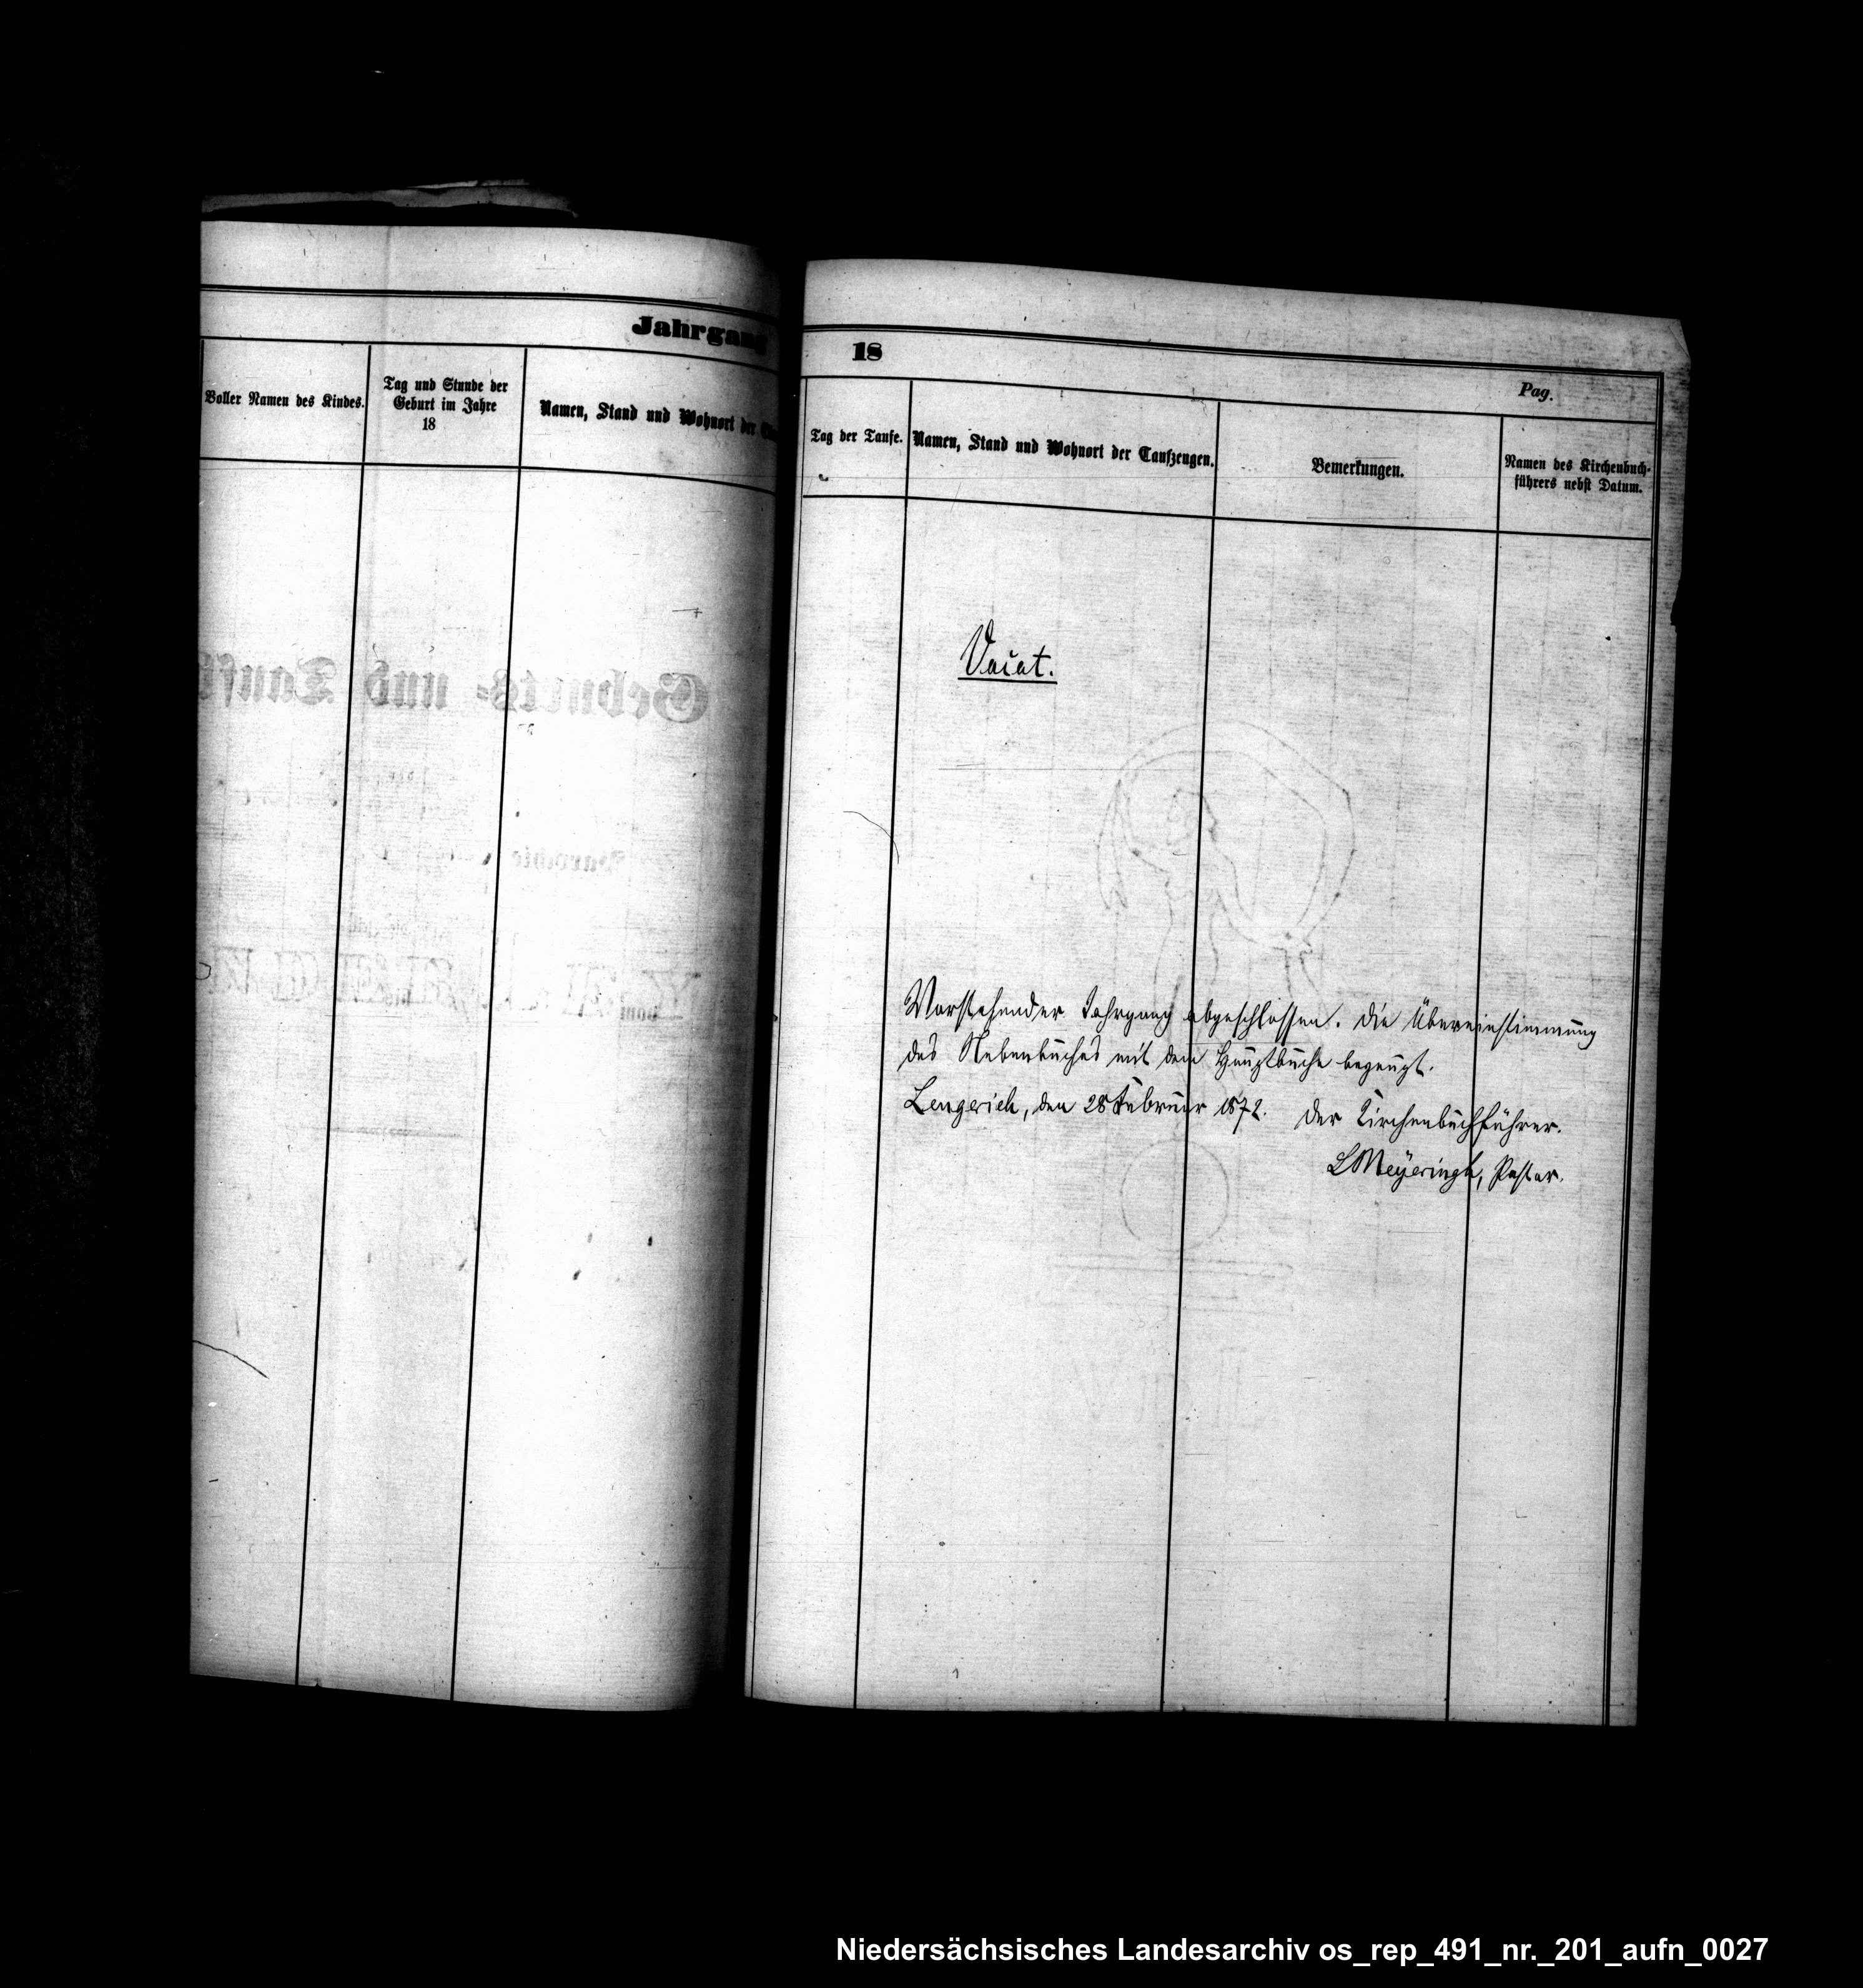 Jahrgang
18
Pag.
Voller Namen des Kindes.
Tag und Stunde der
Geburt im Jahre
18
Namen, Stand und Wohnort der
Tag der Taufe.
Namen, Stand und Wohnort der Taufzeugen.
Bemerkungen.
Namen des Kirchenbuch-
führers nebst Datum.
Vacat.
Geburts- und Tauf
Parochie
vom
bis
Vorstehender Jahrgang abgeschlossen. Die Übereinstimmung
des Nebenbuches mit dem Hauptbuche bezeugt.
Lengerich, den 28 Februar 1872. Der Kirchenbuchführer.
LMeyeringh, Pastor.
Niedersächsisches Landesarchiv os_rep_491_nr._201_aufn_0027